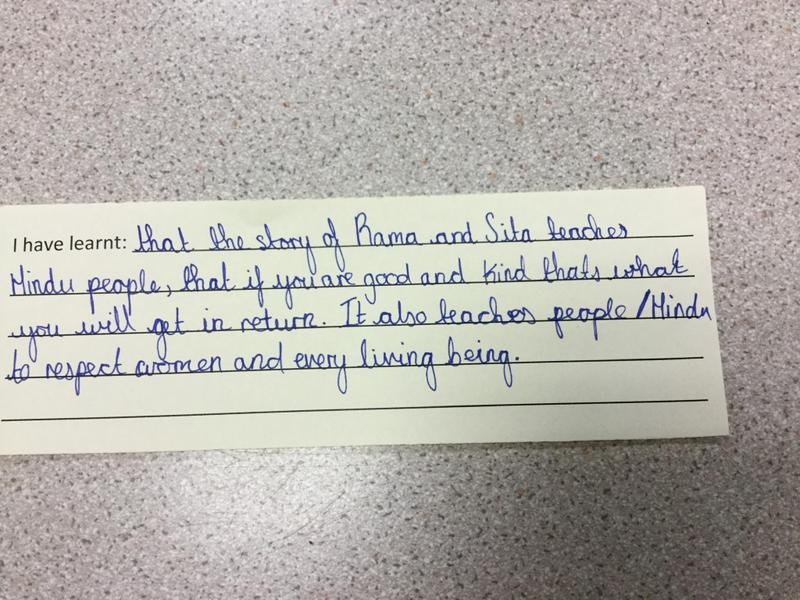 I have learnt: that the story of Rama and Sita teaches
Hindu people, that if you are good and kind thats what
you will get in return. It also teaches people/Hindu
to respect women and every living being.